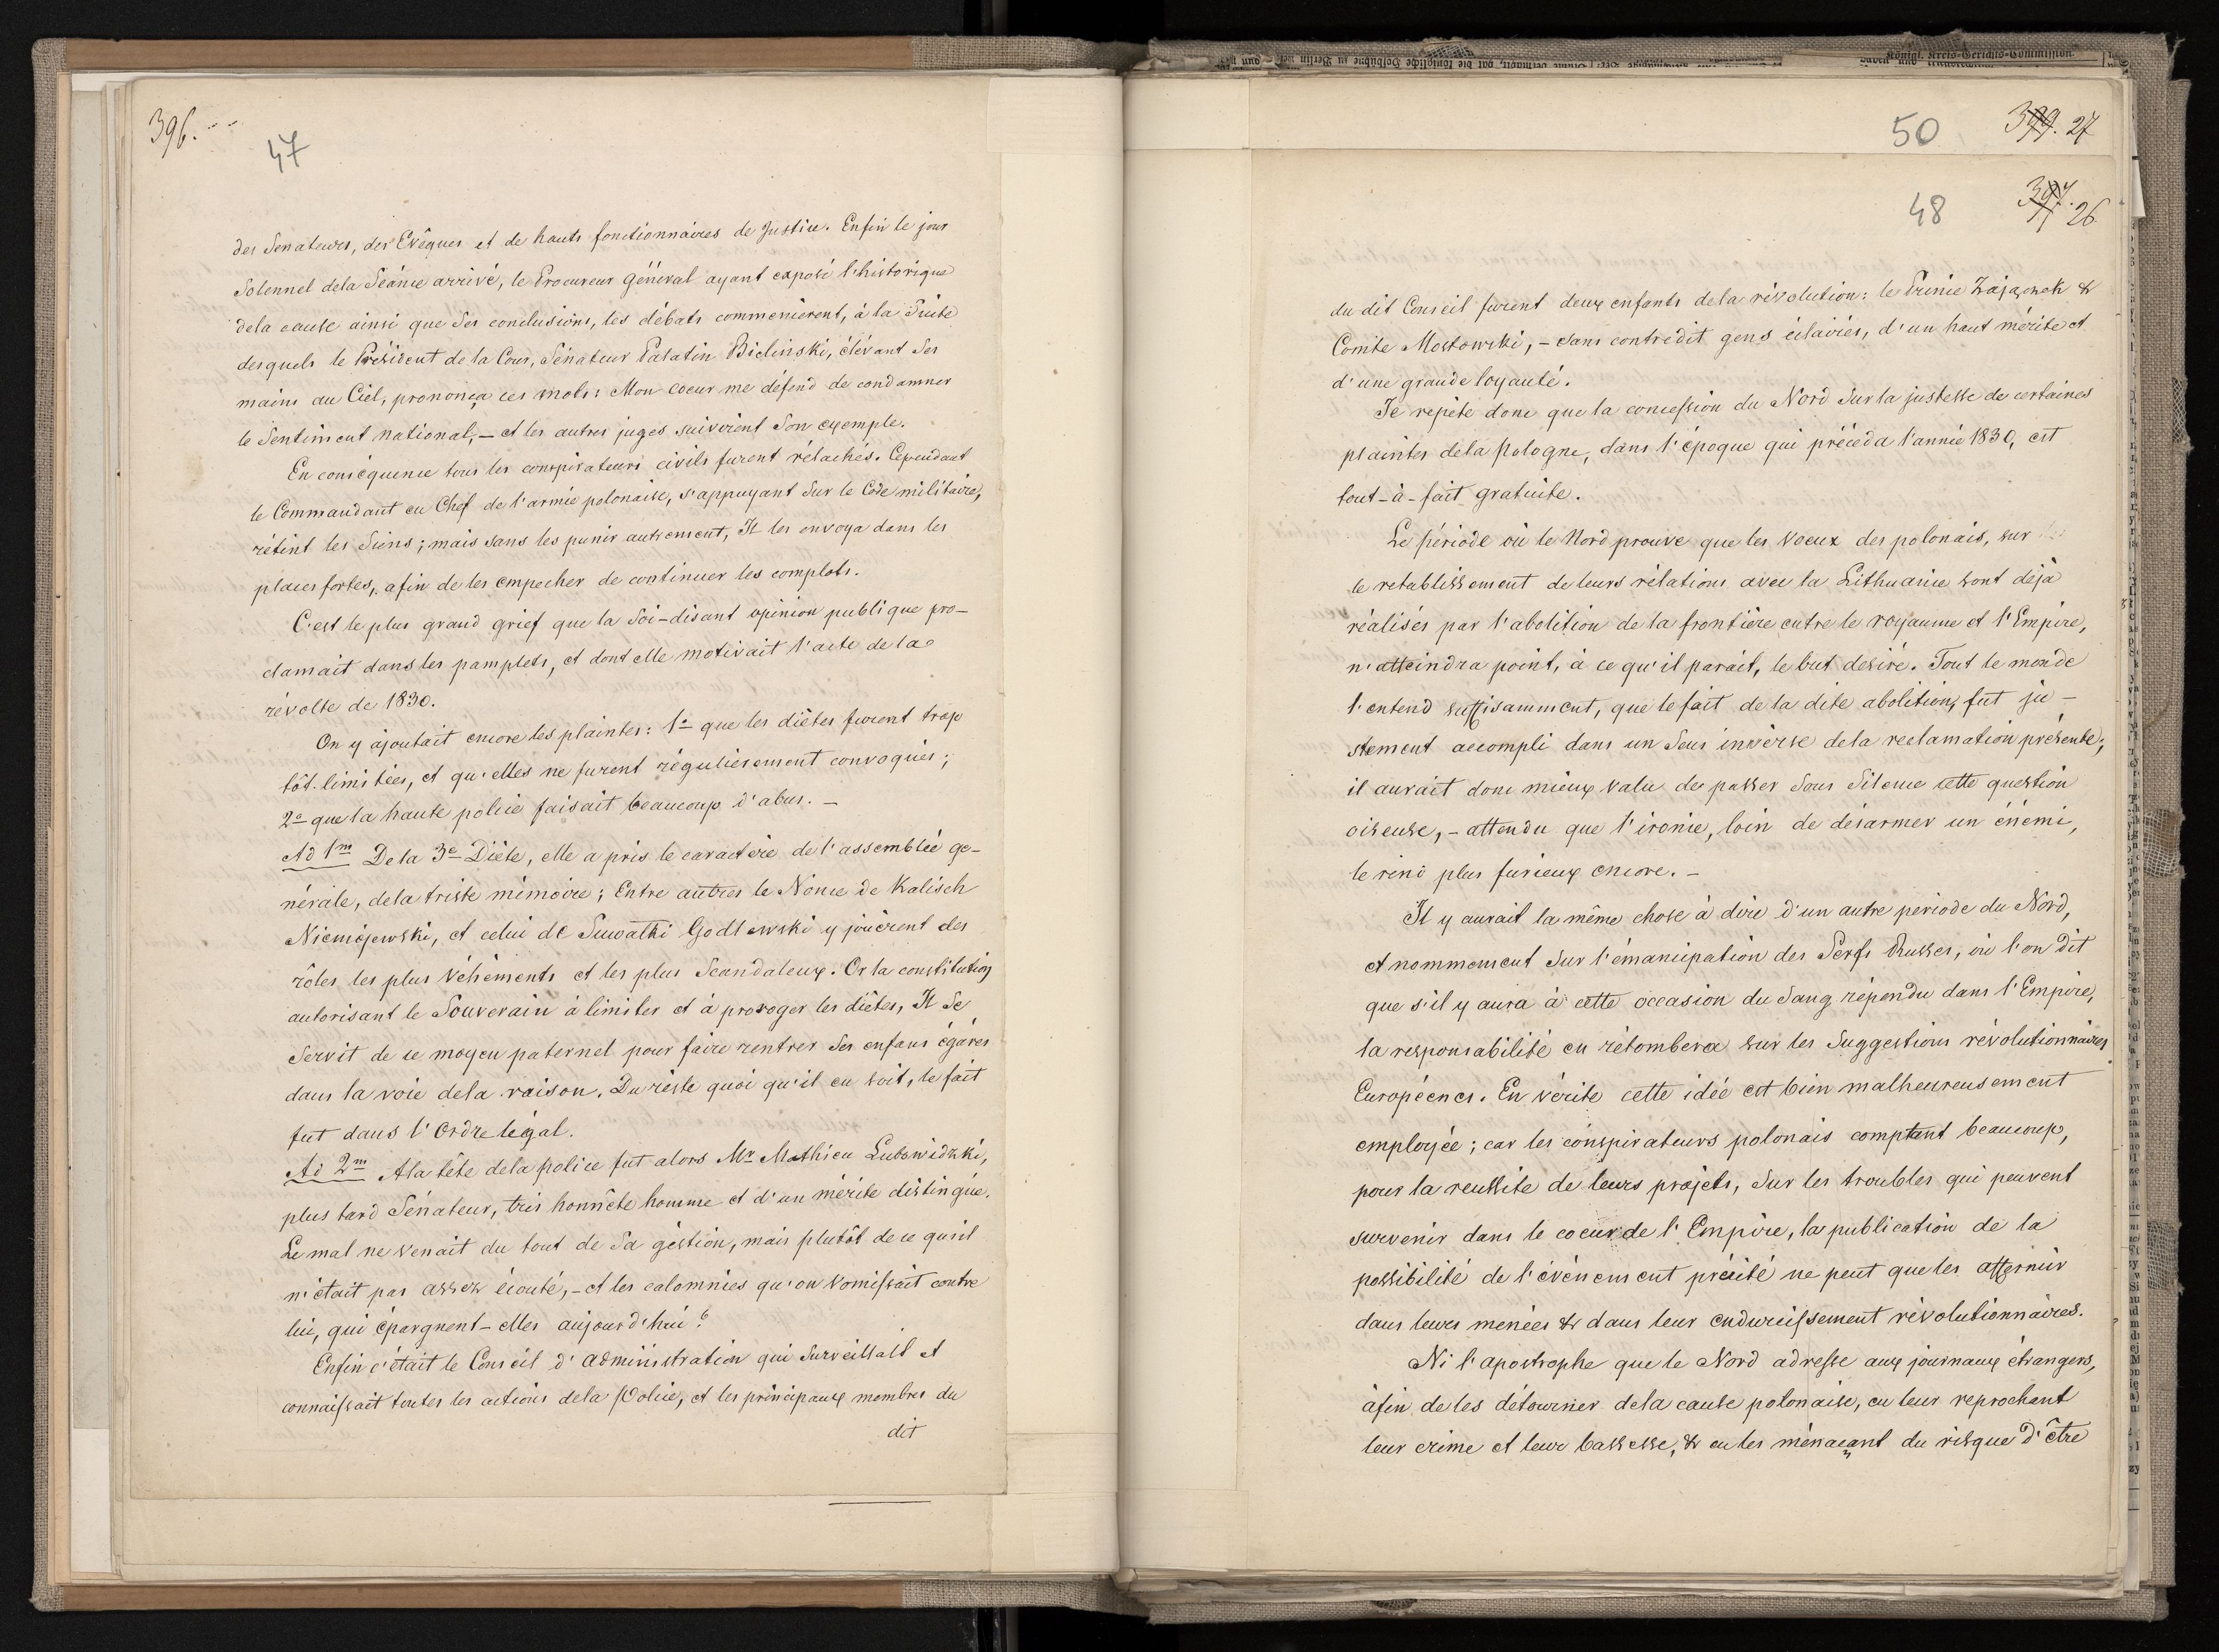 396.
47
des Senateurs, des Evêques et de hauts fonctionnaires de Justice. Enfin le jour
Solennel dela Séance arrivé, le Procureur Général ayant exposé l'historique
dela cause ainsi que Ses conclusions, les débats commencèrent, à la Suite
desquels le Président de la Cour, Sénateur Palatin Bielinski, élévant Ses
mains au Ciel, prononça ces mots: Mon coeur me défend de condamner
le Sentiment national, — et les autres juges suivirent Son exemple.
En conséquence tous les conspirateurs civils furent rélachés. Cependant
le Commandant en Chef de l'armée polonaise, s'appuyant Sur le Code militaire,
rétint les Siens; mais sans les punir autrement, Il les envoya dans les
places fortes, afin de les empecher de continuer les complots.
C'est le plus grand grief que la Soi-disant opinion publique pro-
clamait dans les pamplets, et dont elle motivait l'acte de la
révolte de 1830.
On y ajoutait encore les plaintes: 1o que les diètes furent trop
tôt limitées, et qu'elles ne furent régulièrement convoqués;
2o que la haute police faisait beaucoup d'abus. —
Ad 1m De la 3e Diète, elle a pris le caractère de l'assemblée ge-
nérale, dela triste mémoire; Entre autres le Nonce de Kalisch
Niemojewski, et celui de Suwalki Godlewski y jouèrent des
rôles les plus véhéments et les plus Scandaleux. Or la constitution
autorisant le Souverain à limiter et à proroger les diètes, Il Se
Servit de ce moyen paternel pour faire rentrer Ses enfans égarés
dans la voie dela raison. Du réste quoi qu'il en soit, le fait
fut dans l'Ordre légal.
Ad 2m A la tête dela police fut alors Mr Mathieu Lubowidzki,
plus tard Sénateur, très honnête homme et d'un mérite distingué.
Le mal ne venait du tout de Sa géstion, mais plutôt de ce qu'il
n'était pas assez écouté, – et les calomnies qu'on vomissait contre
lui, qui épargnent-elles aujourd'hui?
Enfin c'était le Conseil d'administration qui Surveillait et
connaissait toutes les actions dela Police, et les principaux membres du
dit
50 399. 27
48 397. 26
du dit Conseil furent deux enfants dela révolution: le Prince Zajączek &
Comte Mostowski, – sans contredit gens éclairés, d'un haut mérite et
d'une grande loyauté.
Je repète donc que la concession du Nord Sur la justesse de certaines
plaintes dela Pologne, dans l'époque qui précéda l'année 1830, est
tout-à-fait gratuite.
Le période où le Nord prouve que les voeux des polonais, sur
le retablissement de leurs rélations avec la Lithuanie sont déjà
réalisés par l'abolition de la frontière entre le royaume et l'Empire,
n'atteindra point, à ce qu'il parait, le but desiré. Tout le monde
l'entend suffisamment, que le fait de la dite abolition, fut ju-
stement accompli dans un Sens invèrse dela reclamation présente;
il aurait donc mieux valu de passer Sous Silence cette question
oiseuse, – attendu que l'ironie, loin de désarmer un énémi,
le rend plus furieux encore. –
Il y aurait la même chose à dire d'un autre periode du Nord,
et nommement Sur l'émancipation des Serfs Russes, où l'on dit
que s'il y aura à cette occasion du Sang répendu dans l'Empire,
la responsabilité en rétombera sur les Suggestions révolutionnaires
Européenes. En vérité cette idée est bien malheureusement
employée; car les conspirateurs polonais comptant beaucoup,
pour la reussite de leurs projets, Sur les troubles qui peuvent
survenir dans le coeur de l'Empire, la publication de la
possibilité de l'évènement précité ne peut que les affermir
dans leurs menées & dans leur endurcissement révolutionnaires.
Ni l'apostrophe que le Nord adresse aux journaux étrangers,
àfin de les détourner dela cause polonaise, en leur reprochant
leur crime et leur bassesse, & en les ménaçant du risque d'être